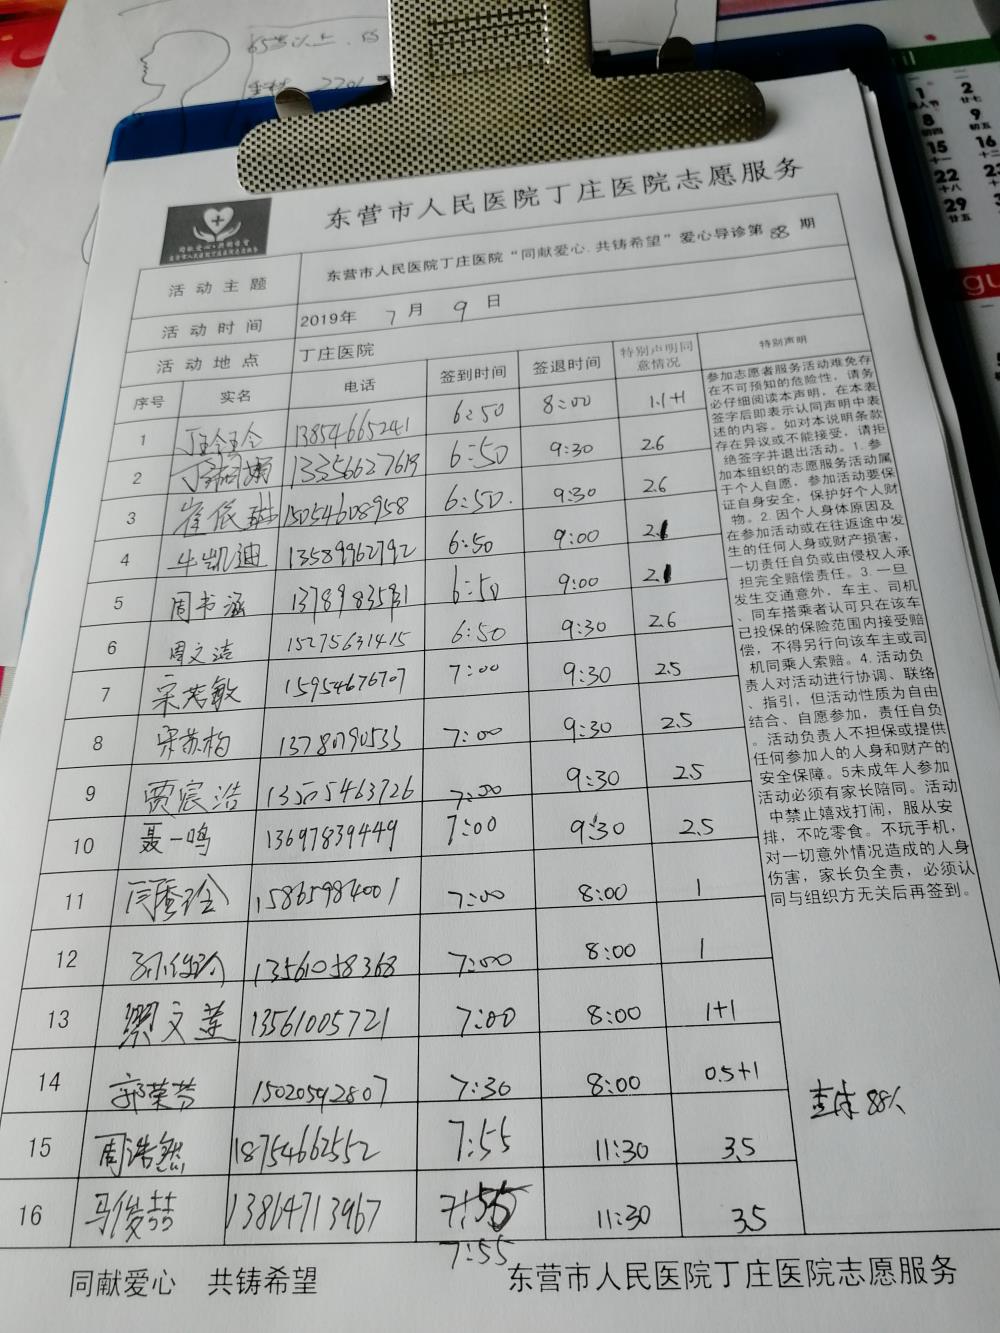 65岁以上
东营市人民医院丁庄医院志愿服务
活动主题 东营市人民医院丁庄医院“同献爱心.共铸希望”爱心导诊第88期
活动时间 2019年 7 月 9 日
活动地点 丁庄医院
序号 实名 电话 签到时间 签退时间 特别声明同意情况 特别声明
1 13854665241 6:50 8:00 1.1+1
2 13356627619 6:50 9:30 2.6
3 崔依 15054608958 6:50. 9:30 2.6
4 牛凯迪 13589962792 6:50 9:00 2.1
5 周书涵 13789835931 6:50 9:00 2.1
6 周文洁 15275631415 6:50 9:30 2.6
7 宋若敏 15954676707 7:00 9:30 2.5
8 宋苏柏 13780790533 7:00 9:30 2.5
9 贾宸浩 13505463726 7:00 9:30 2.5
10 聂一鸣 13697839449 7:00 9:30 2.5
11 闫秀玲 15865984001 7:00 8:00 1
12 13561058368 7:00 8:00 1
13 文莲 13561005721 7:00 8:00 1+1
14 郭荣芳 15020592807 7:30 8:00 0.5+1
15 周浩然 18754662552 7:55 11:30 3.5
16 马俊喆 13864713967 11:30 3.5
7:55
参加志愿者服务活动难免存
在不可预知的危险性，请务
必仔细阅读本声明，在本表
签字后即表示认同声明中表
述的内容。如对本说明条款
存在异议或不能接受，请拒
绝签字并退出活动。1.参
加本组织的志愿服务活动属
于个人自愿，参加活动要保
证自身安全，保护好个人财
物。2.因个人身体原因及
在参加活动或在往返途中发
生的任何人身或财产损害，
一切责任自负或由侵权人承
担完全赔偿责任。3.一旦
发生交通意外，车主、司机
、同车搭乘者认可只在该车
已投保的保险范围内接受赔
偿，不得另行向该车主或司
机同乘人索赔。4.活动负
责人对活动进行协调、联络
、指引，但活动性质为自由
结合、自愿参加，责任自负
。活动负责人不担保或提供
任何参加人的人身和财产的
安全保障。5未成年人参加
活动必须有家长陪同。活动
中禁止嬉戏打闹，服从安
排，不吃零食。不玩手机，
对一切意外情况造成的人身
伤害，家长负全责，必须认
同与组织方无关后再签到。
88人
同献爱心 共铸希望
东营市人民医院丁庄医院志愿服务